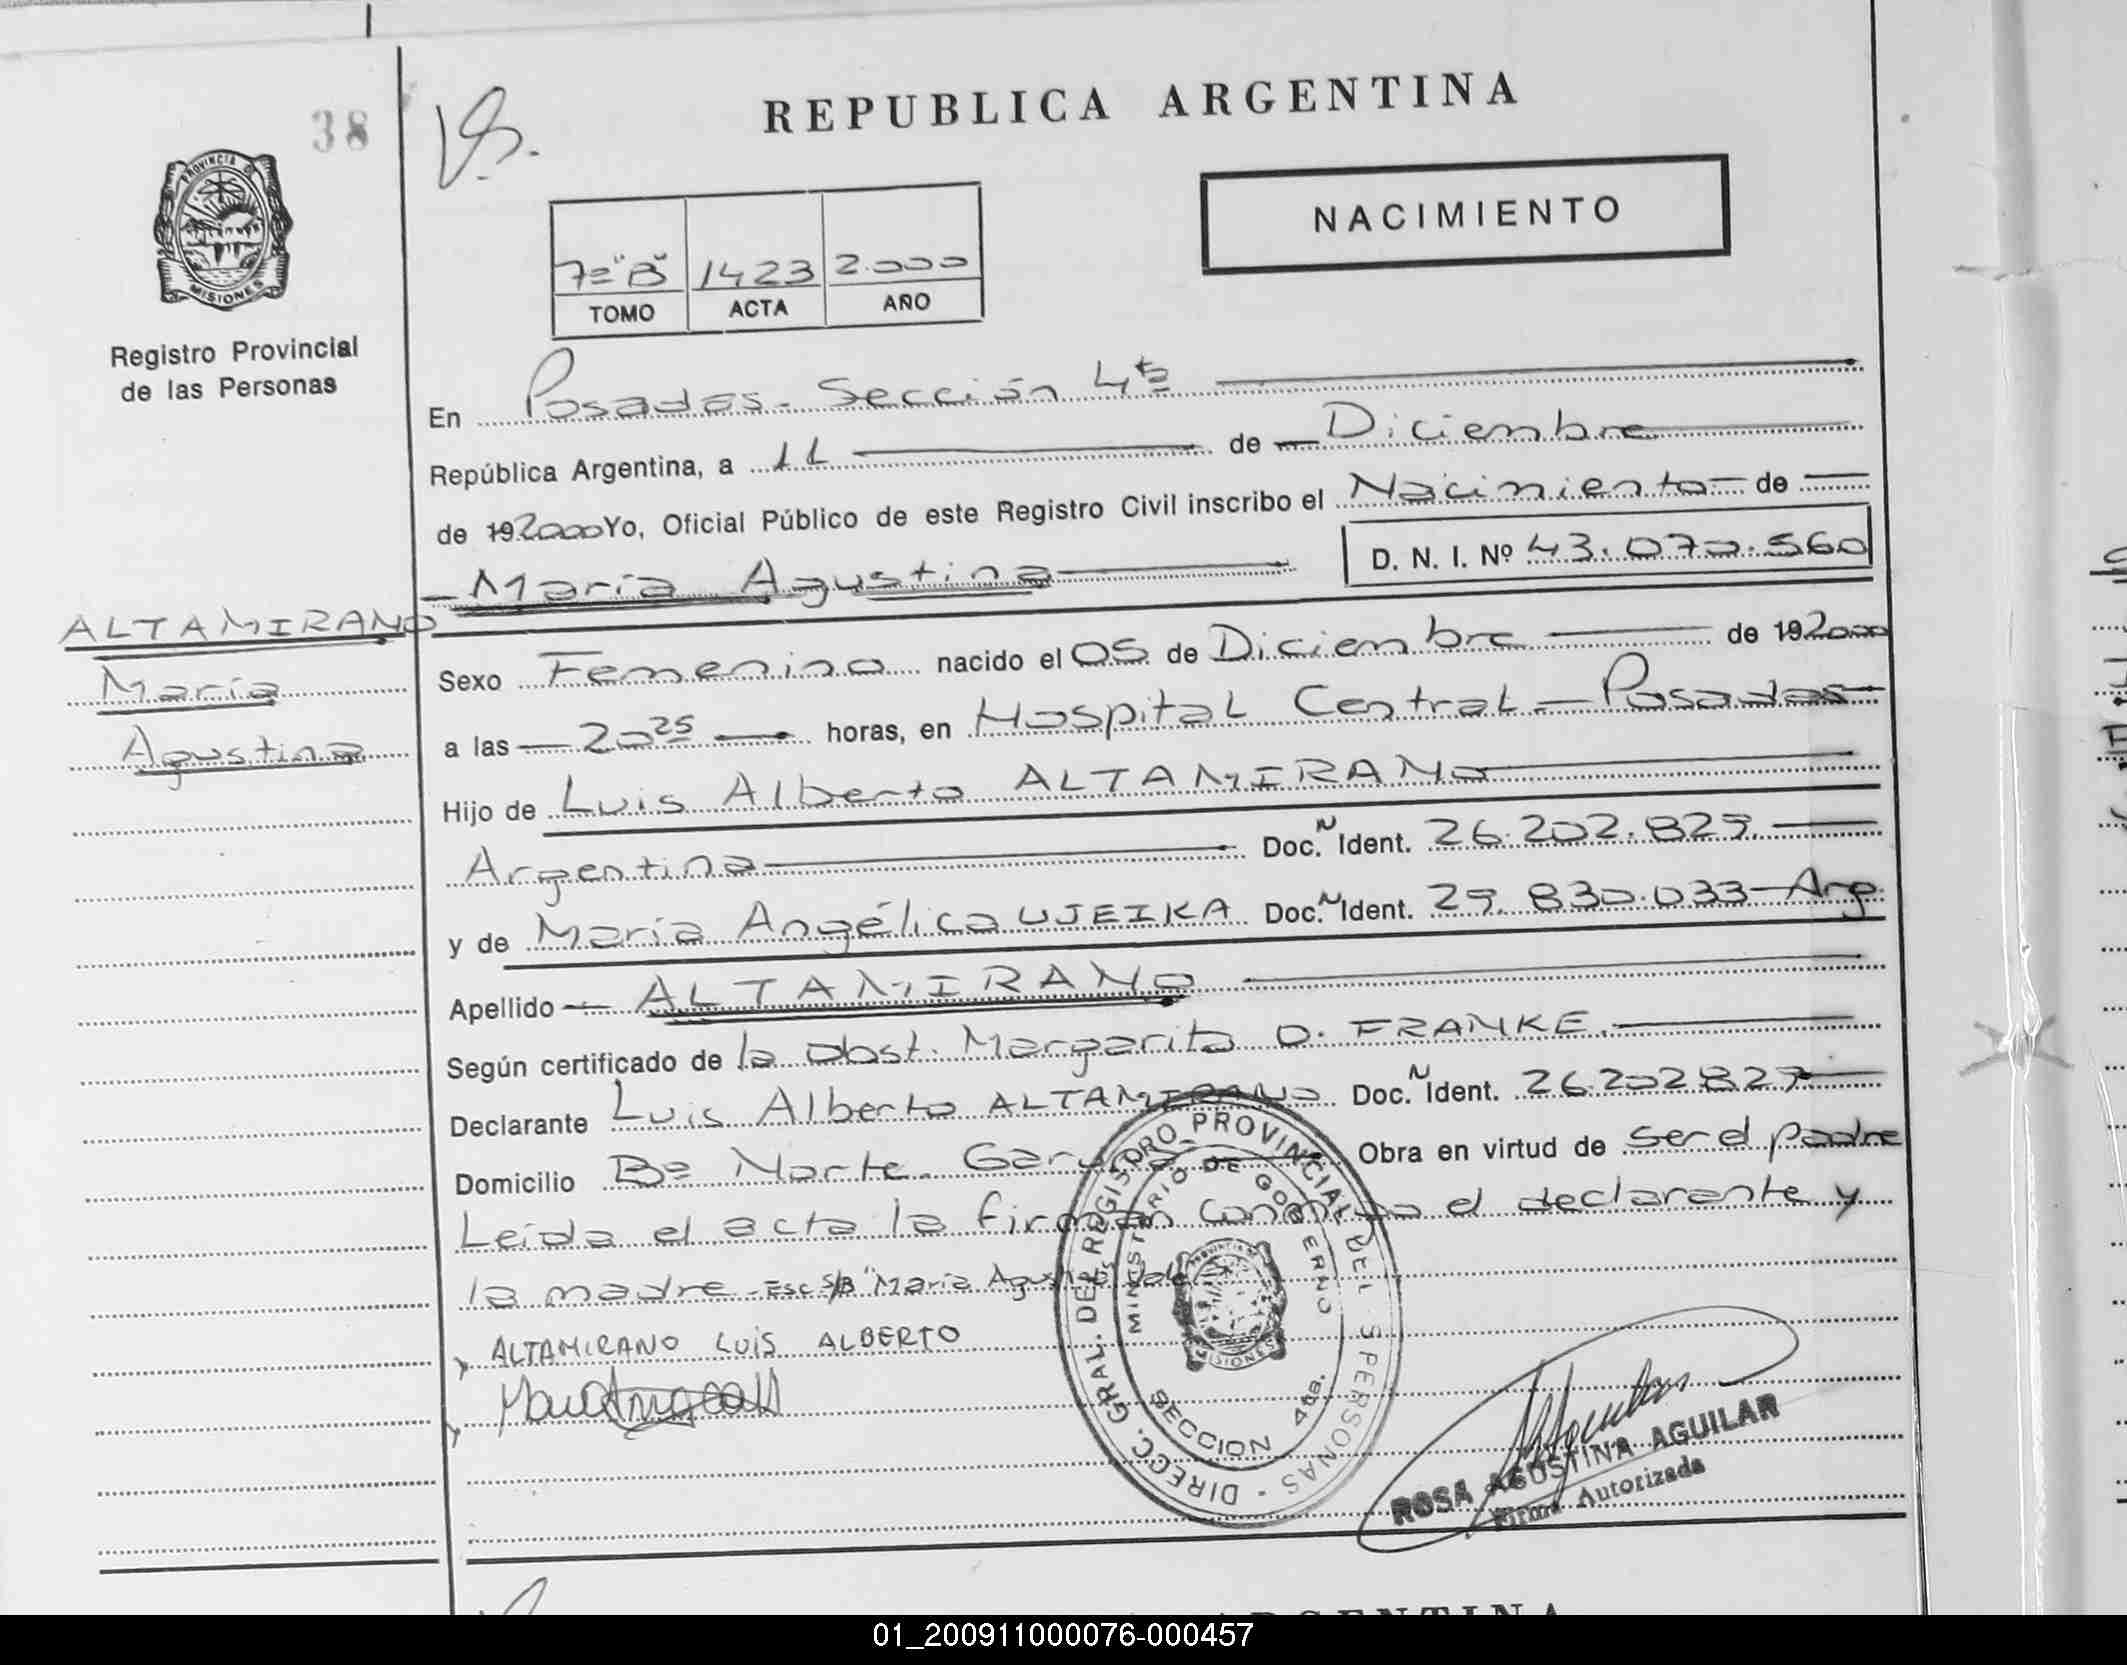 38
V.B.
REPUBLICA ARGENTINA
NACIMIENTO
7º "B" 1423 2.000
TOMO ACTA AÑO
PROVINCIA DE
MISIONES
Registro Provincial
de las Personas
En Posadas - Sección 4ta
República Argentina, a 11 de Diciembre
de 192000 Yo, Oficial Público de este Registro Civil inscribo el Nacimiento de
María Agustina D. N. I. Nº 43.070.560
ALTAMIRANO
María
Agustina
Sexo Femenino nacido el 05 de Diciembre de 192000
a las 20 25 horas, en Hospital Central - Posadas
Hijo de Luis Alberto ALTAMIRANO
Argentina Doc. N Ident. 26.202.829
y de María Angélica UJEIKA Doc. N Ident. 29.830.033 - Arg.
Apellido ALTAMIRANO
Según certificado de la obst. Margarita O. FRANKE.
Declarante Luis Alberto ALTAMIRANO Doc. N Ident. 26.202.829
Domicilio Bº Norte - Garupá Obra en virtud de ser el padre
Leída el acta la firman conmigo el declarante y
la madre - Esc S/B "María Agustina" Vale
ALTAMIRANO LUIS ALBERTO
DIRECC. GRAL. DEL REGISTRO PROVINCIAL DE LAS PERSONAS
MINISTERIO DE GOBIERNO
SECCION 4ta.
MISIONES
ROSA AGUSTINA AGUILAR
Firma Autorizada
ARGENTINA
01_200911000076-000457